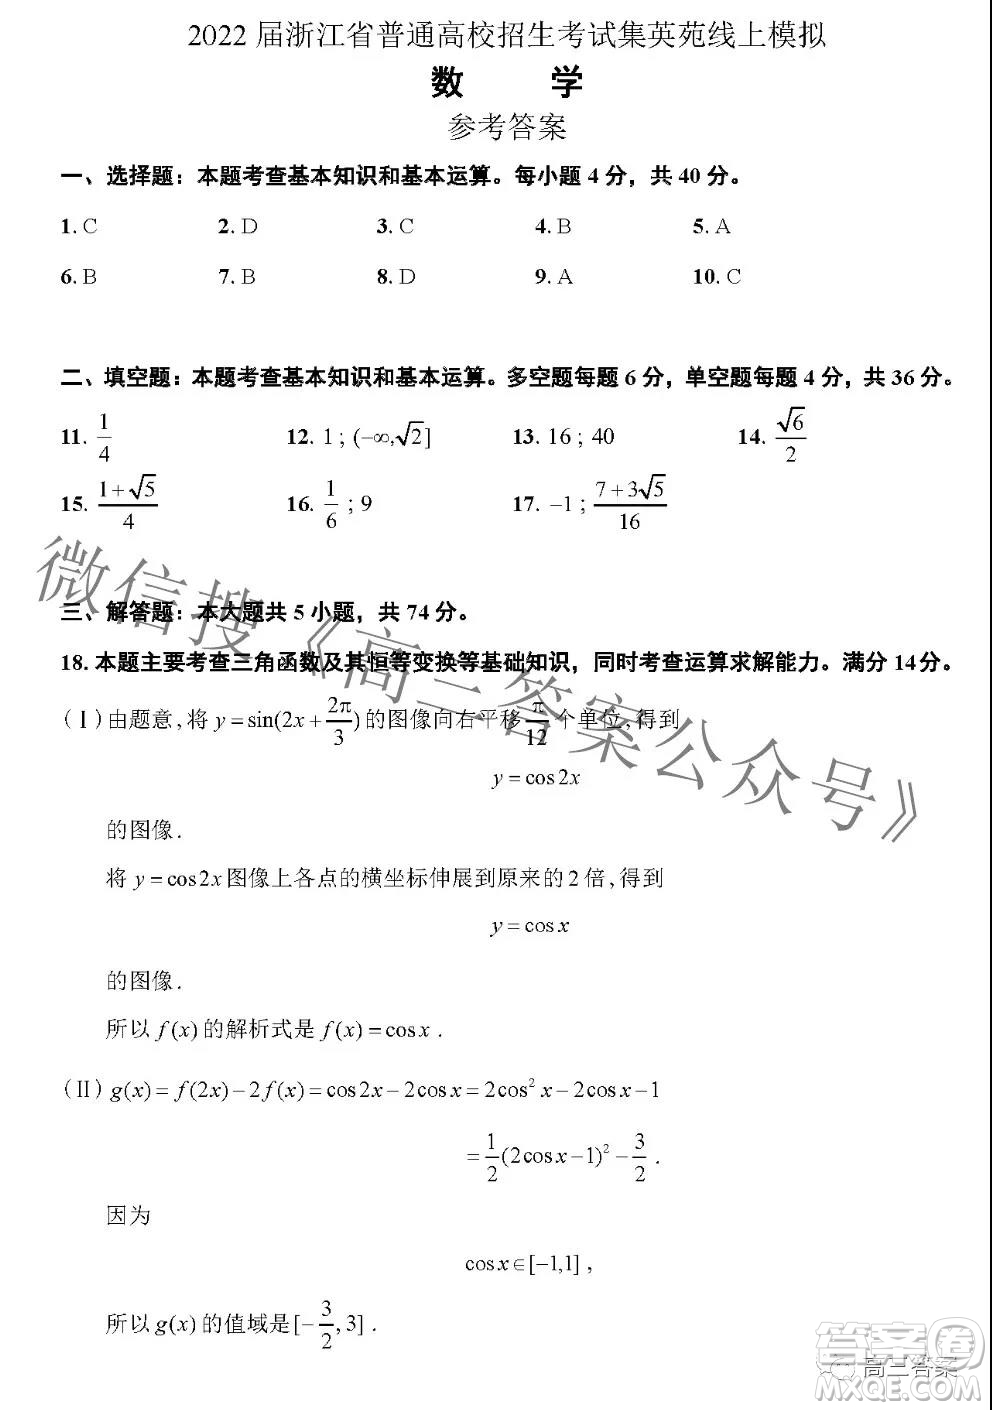 2022 届浙江省普通高校招生考试集英苑线上模拟
数 学
参考答案
一、选择题：本题考查基本知识和基本运算。每小题 4 分，共 40 分。
1. C 2. D 3. C 4. B 5. A
6. B 7. B 8. D 9. A 10. C
二、填空题：本题考查基本知识和基本运算。多空题每题 6 分，单空题每题 4 分，共 36 分。
11. 1/4 12. 1；(−∞,√2] 13. 16；40 14. √6/2
15. (1+√5)/4 16. 1/6；9 17. −1；(7+3√5)/16
三、解答题：本大题共 5 小题，共 74 分。
18. 本题主要考查三角函数及其恒等变换等基础知识，同时考查运算求解能力。满分 14 分。
(Ⅰ) 由题意，将 y=sin(2x+2π/3) 的图像向右平移 π/12 个单位，得到
y=cos2x
的图像．
将 y=cos2x 图像上各点的横坐标伸展到原来的 2 倍，得到
y=cosx
的图像．
所以 f(x) 的解析式是 f(x)=cosx．
(Ⅱ) g(x)=f(2x)−2f(x)=cos2x−2cosx=2cos²x−2cosx−1
=1/2(2cosx−1)²−3/2．
因为
cosx∈[−1,1]，
所以 g(x) 的值域是 [−3/2,3]．
微信搜《高三答案公众号》
高三答案
答案圈
MXQE.COM